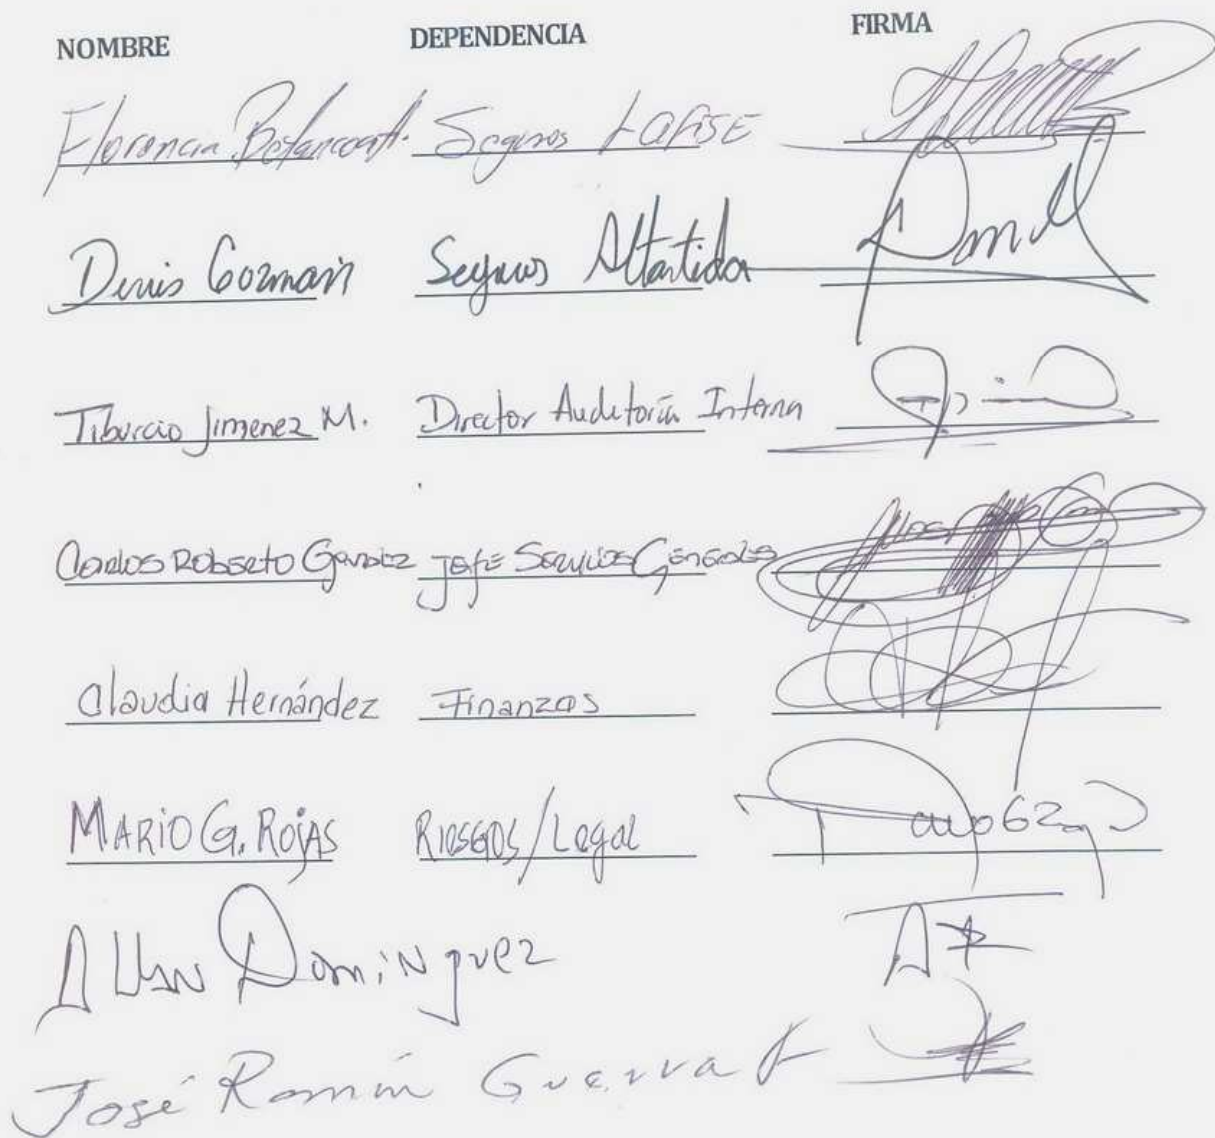 NOMBRE DEPENDENCIA FIRMA
Florencia Betancourt. Seguros LAFISE
Denis Gozman Seguros Atlantida
Tiburcio Jimenez M. Director Auditoría Interna
Carlos Roberto Jefe Servicios Generales
Claudia Hernández Finanzas
MARIO G. ROJAS RIESGOS/Legal
Allan Dominguez
José Ramón Guerra